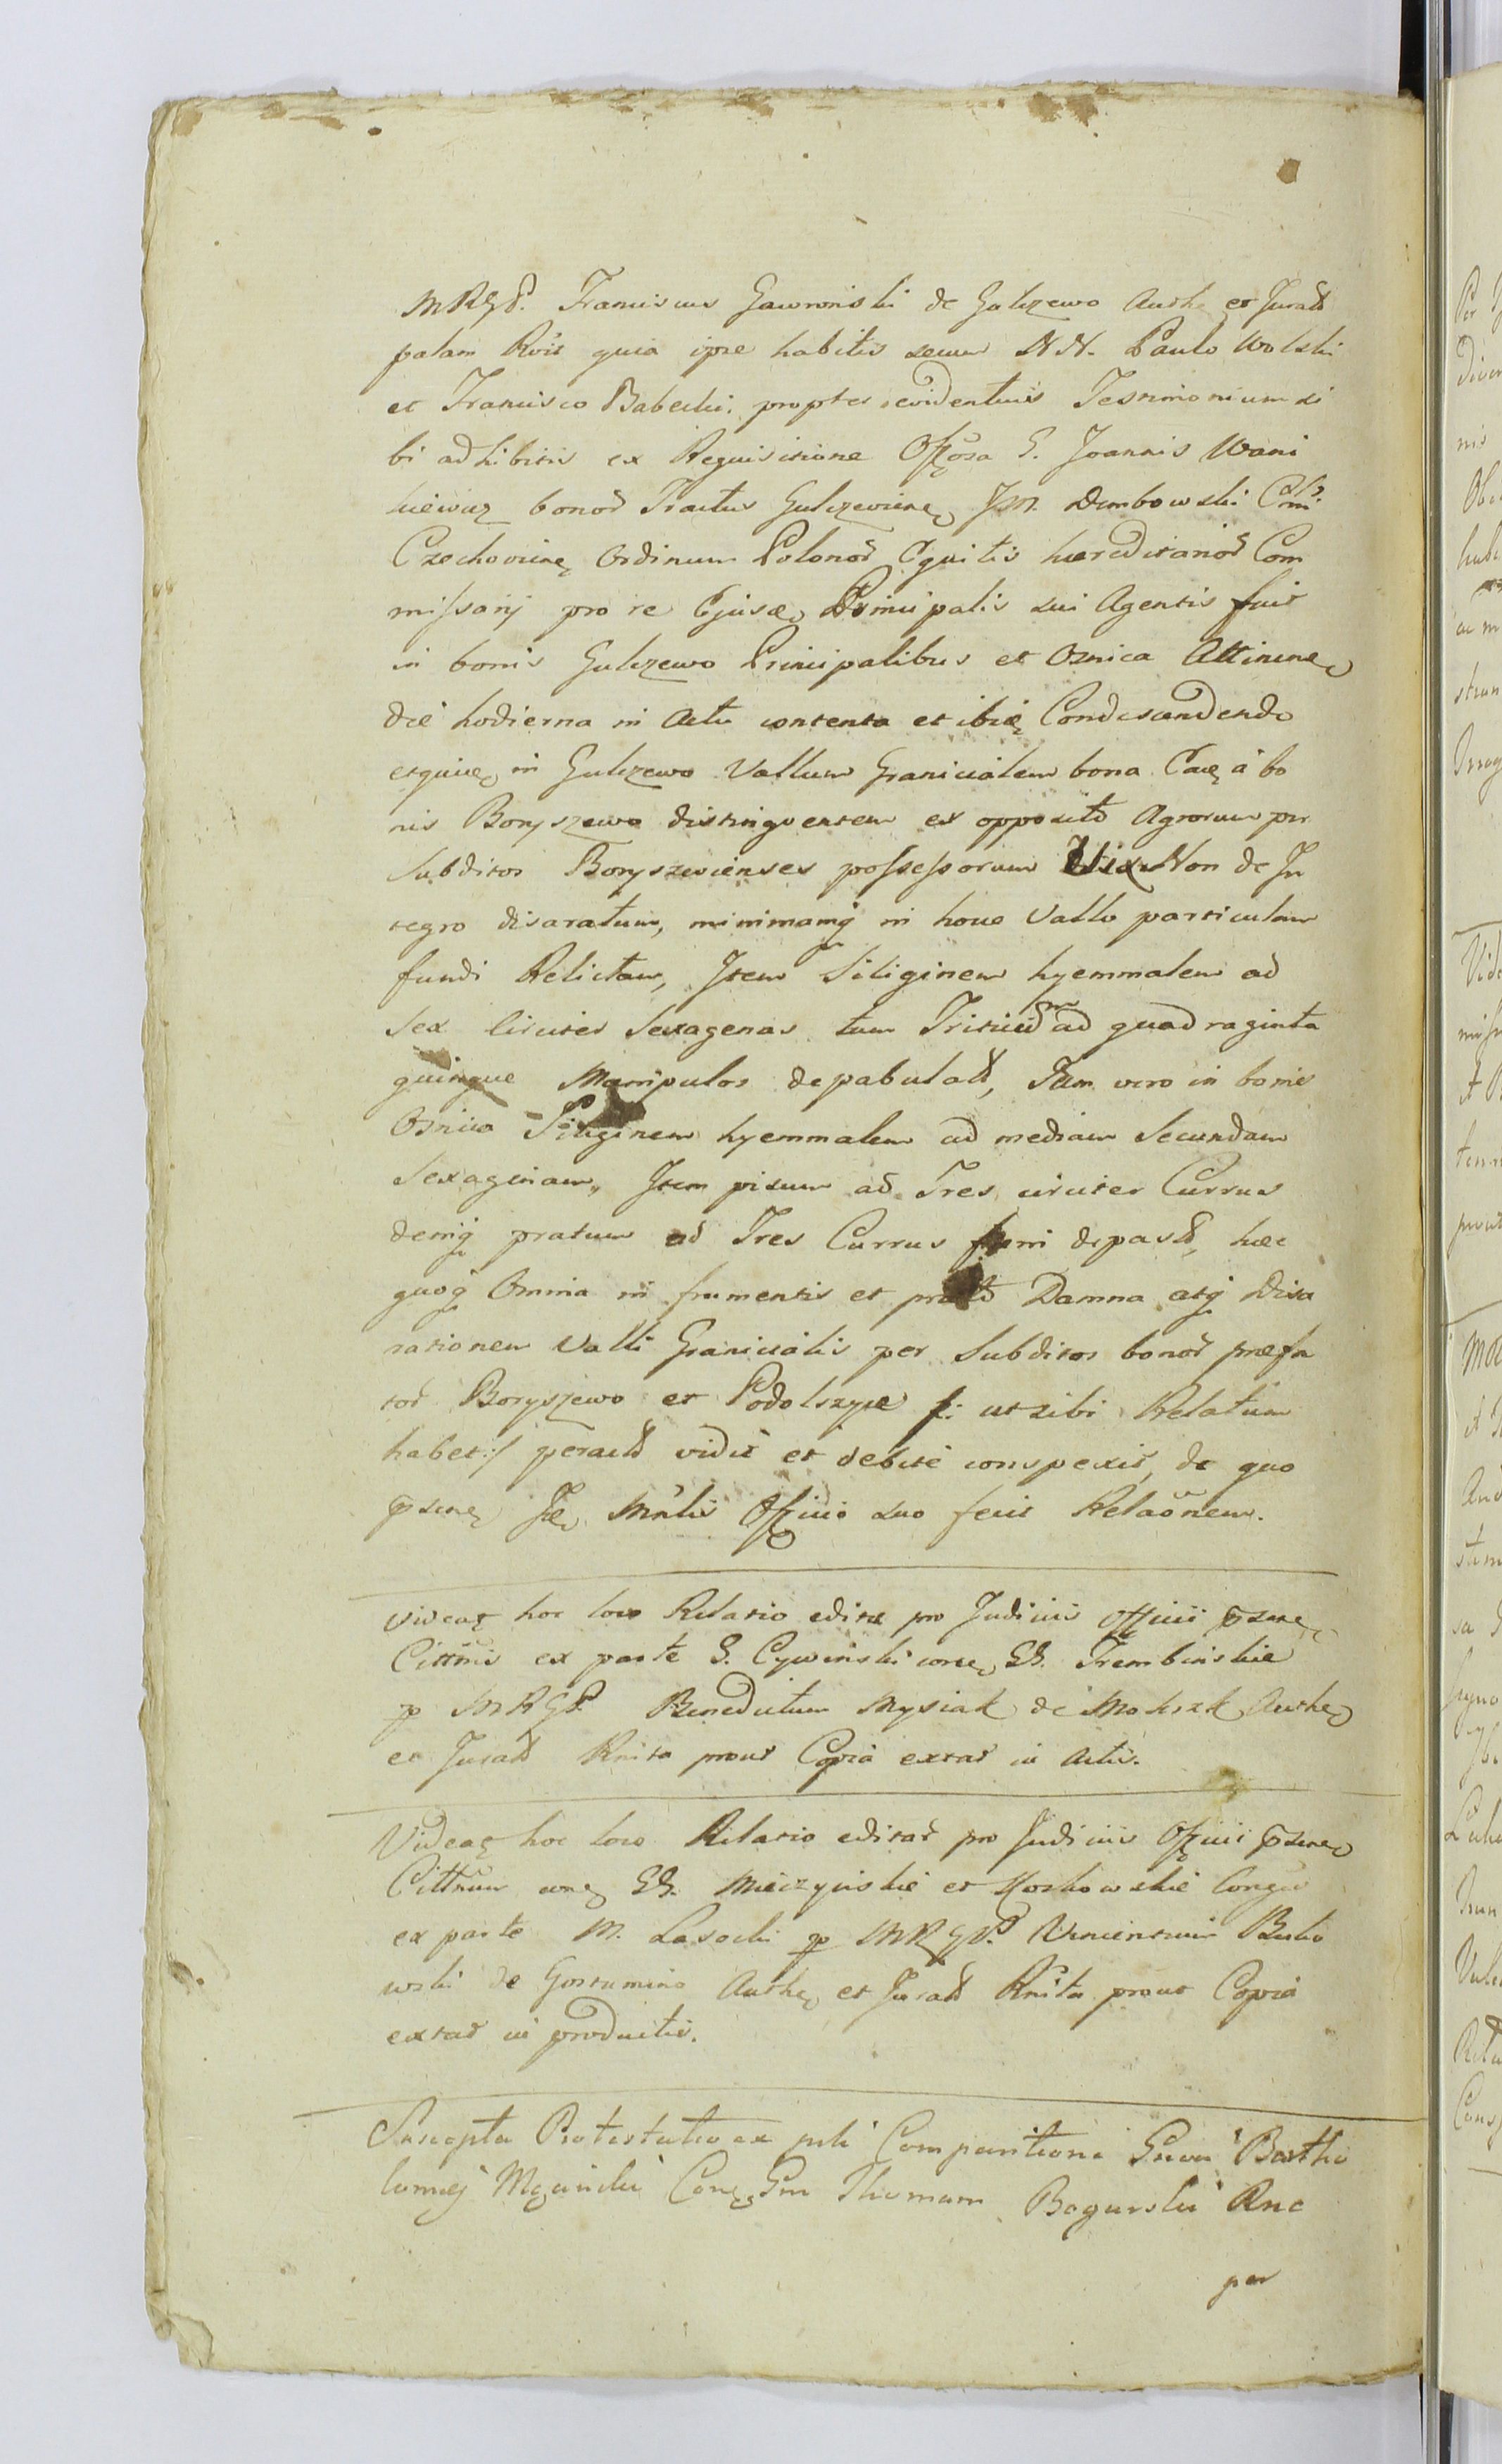 MRGP. Franciscus Gawronski de Gulczewo Authe et Jurat
palam Rvit quia ipse habitis secum NN. Paulo Wolski
et Francisco Babecki propter evidentius Testimonium si
bi adhibitis ex Requisitione Offosa G. Joannis Wani
kiewicz bonor Tractus Gulczeviens JM. Dembowski
Czechoviens Ordinum Polonor Equitis hæreditarior Com
missarij pro re Ejusd Principalis sui Agentis fuit
in bonis Gulczewo Principalibus et Osnica Attinen
die hodierna in Actu contenta et ibid Condescendendo
in Gulczewo Vallum Granicialem bona Ead à bo
nis Boryszewo distinguentem ex opposito Agrorum per
Subditos Boryszevienses possessorum Non de In
tegro disaratum, minimamq in hocce Vallo particulam
fundi Relictam, Item Siliginem hyemmalem ad
Sex circiter Sexagenas tum Triticum ad quadraginta
quinque Manipulos depabulat, Tum vero in bonis
Osnica Siliginem hyemmalem ad mediam Secundam
Sexagenam, Item pisum ad Tres circiter Currus
deniq pratum ad Tres Currus fæni depast, hæc
quoq Omnia in frumentis et prato Damna atq Disa
rationem Valli Granicialis per Subditos bonor præfa
tor Boryszewo et Podolszyce /: ut sibi Relatum
habet :/ peracta vidit et debite conspexit, de quo
psens Mnlis Officio suo fecit Relaonem.

Videat hoc loco Relatio edita pro Judiciis Officii psens
Cittnis ex parte G. Cywinski cone GG. Trembinskie
p MRGP. Benedictum Mysiak de Mokrzk Authe
et Jurat Rnita prout Copia extat in Actis.

Videat hoc loco Relatio editar pro Judiciis Officii psens
Cittnum cone GG. Mieczynskie et Koskowskie Congu
ex parte M. Lasocki p MRGP. Vincentium Bulko
wski de Gostumino Authe et Jurat Rnita prout Copia
extat in productis.

Suscepta Protestatio ex psli Comparitione Gnosi Bartho
lomej Cone Gm Thomam Bogurski Rne
per